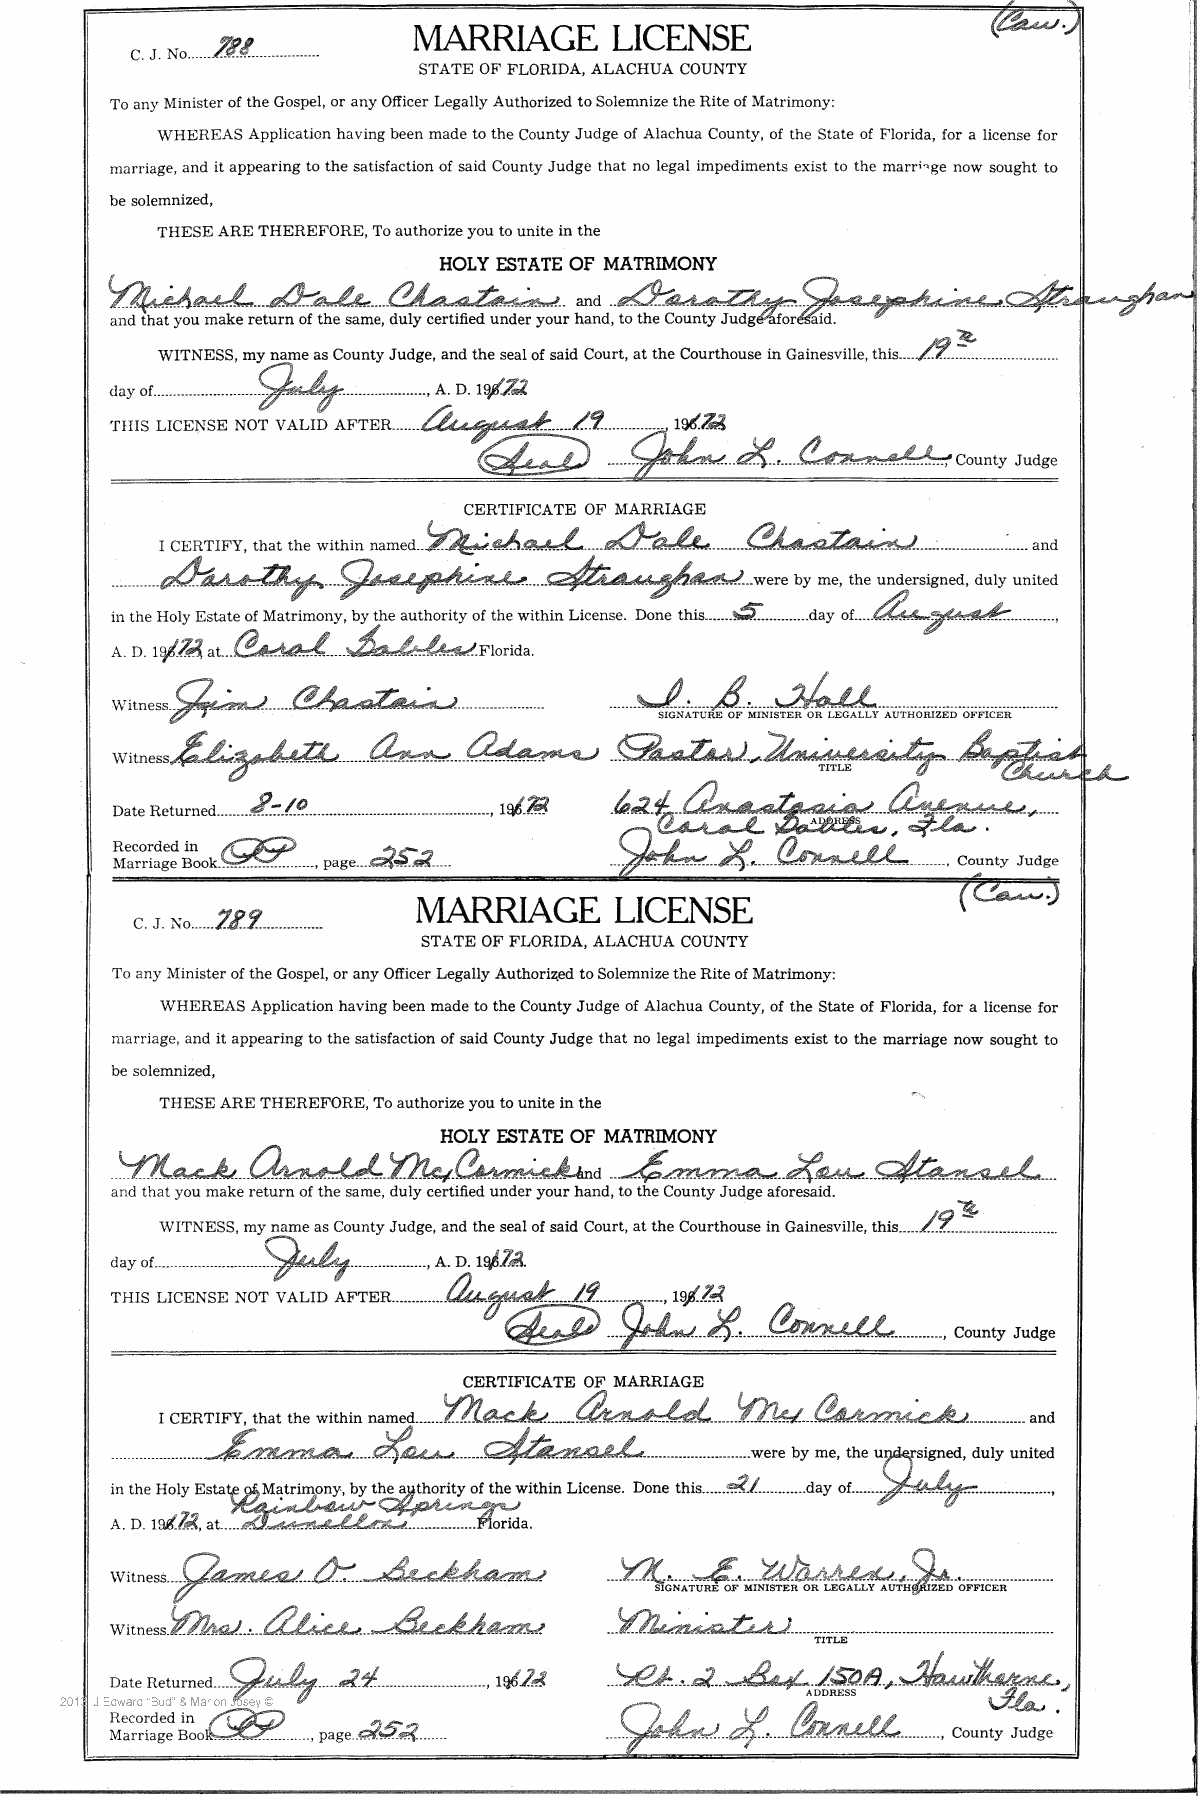 (Cau.)
C. J. No. 788 MARRIAGE LICENSE
STATE OF FLORIDA, ALACHUA COUNTY
To any Minister of the Gospel, or any Officer Legally Authorized to Solemnize the Rite of Matrimony:
WHEREAS Application having been made to the County Judge of Alachua County, of the State of Florida, for a license for
marriage, and it appearing to the satisfaction of said County Judge that no legal impediments exist to the marriage now sought to
be solemnized,
THESE ARE THEREFORE, To authorize you to unite in the
HOLY ESTATE OF MATRIMONY
Michael Dale Chastain and Dorothy Josephine Straughan
and that you make return of the same, duly certified under your hand, to the County Judge aforesaid.
WITNESS, my name as County Judge, and the seal of said Court, at the Courthouse in Gainesville, this 19th
day of July, A. D. 1972
THIS LICENSE NOT VALID AFTER August 19, 1972
(Seal) John L. Connell, County Judge
CERTIFICATE OF MARRIAGE
I CERTIFY, that the within named Michael Dale Chastain and
Dorothy Josephine Straughan were by me, the undersigned, duly united
in the Holy Estate of Matrimony, by the authority of the within License. Done this 5 day of August,
A. D. 1972, at Coral Gables Florida.
Witness Jim Chastain I. B. Hall
SIGNATURE OF MINISTER OR LEGALLY AUTHORIZED OFFICER
Witness Elizabeth Ann Adams Pastor, University Baptist
TITLE Church
Date Returned 8-10, 1972 624 Anastasia Avenue,
ADDRESS Coral Gables, Fla.
Recorded in
Marriage Book, page 252 John L. Connell, County Judge
(Cau.)
C. J. No. 789 MARRIAGE LICENSE
STATE OF FLORIDA, ALACHUA COUNTY
To any Minister of the Gospel, or any Officer Legally Authorized to Solemnize the Rite of Matrimony:
WHEREAS Application having been made to the County Judge of Alachua County, of the State of Florida, for a license for
marriage, and it appearing to the satisfaction of said County Judge that no legal impediments exist to the marriage now sought to
be solemnized,
THESE ARE THEREFORE, To authorize you to unite in the
HOLY ESTATE OF MATRIMONY
Mack Arnold McCormick and Emma Lou Stansel
and that you make return of the same, duly certified under your hand, to the County Judge aforesaid.
WITNESS, my name as County Judge, and the seal of said Court, at the Courthouse in Gainesville, this 19th
day of July, A. D. 1972.
THIS LICENSE NOT VALID AFTER August 19, 1972
(Seal) John L. Connell, County Judge
CERTIFICATE OF MARRIAGE
I CERTIFY, that the within named Mack Arnold McCormick and
Emma Lou Stansel were by me, the undersigned, duly united
in the Holy Estate of Matrimony, by the authority of the within License. Done this 21 day of July,
Rainbow Springs
A. D. 1972, at Dunellon Florida.
Witness James O. Beckham M. E. Warren, Jr.
SIGNATURE OF MINISTER OR LEGALLY AUTHORIZED OFFICER
Witness Mrs. Alice Beckham Minister
TITLE
Date Returned July 24, 1972 Rt. 2 Box 150A, Hawthorne,
ADDRESS Fla.
2013 J Edward "Bud" & Marion Josey ©
Recorded in
Marriage Book, page 252 John L. Connell, County Judge